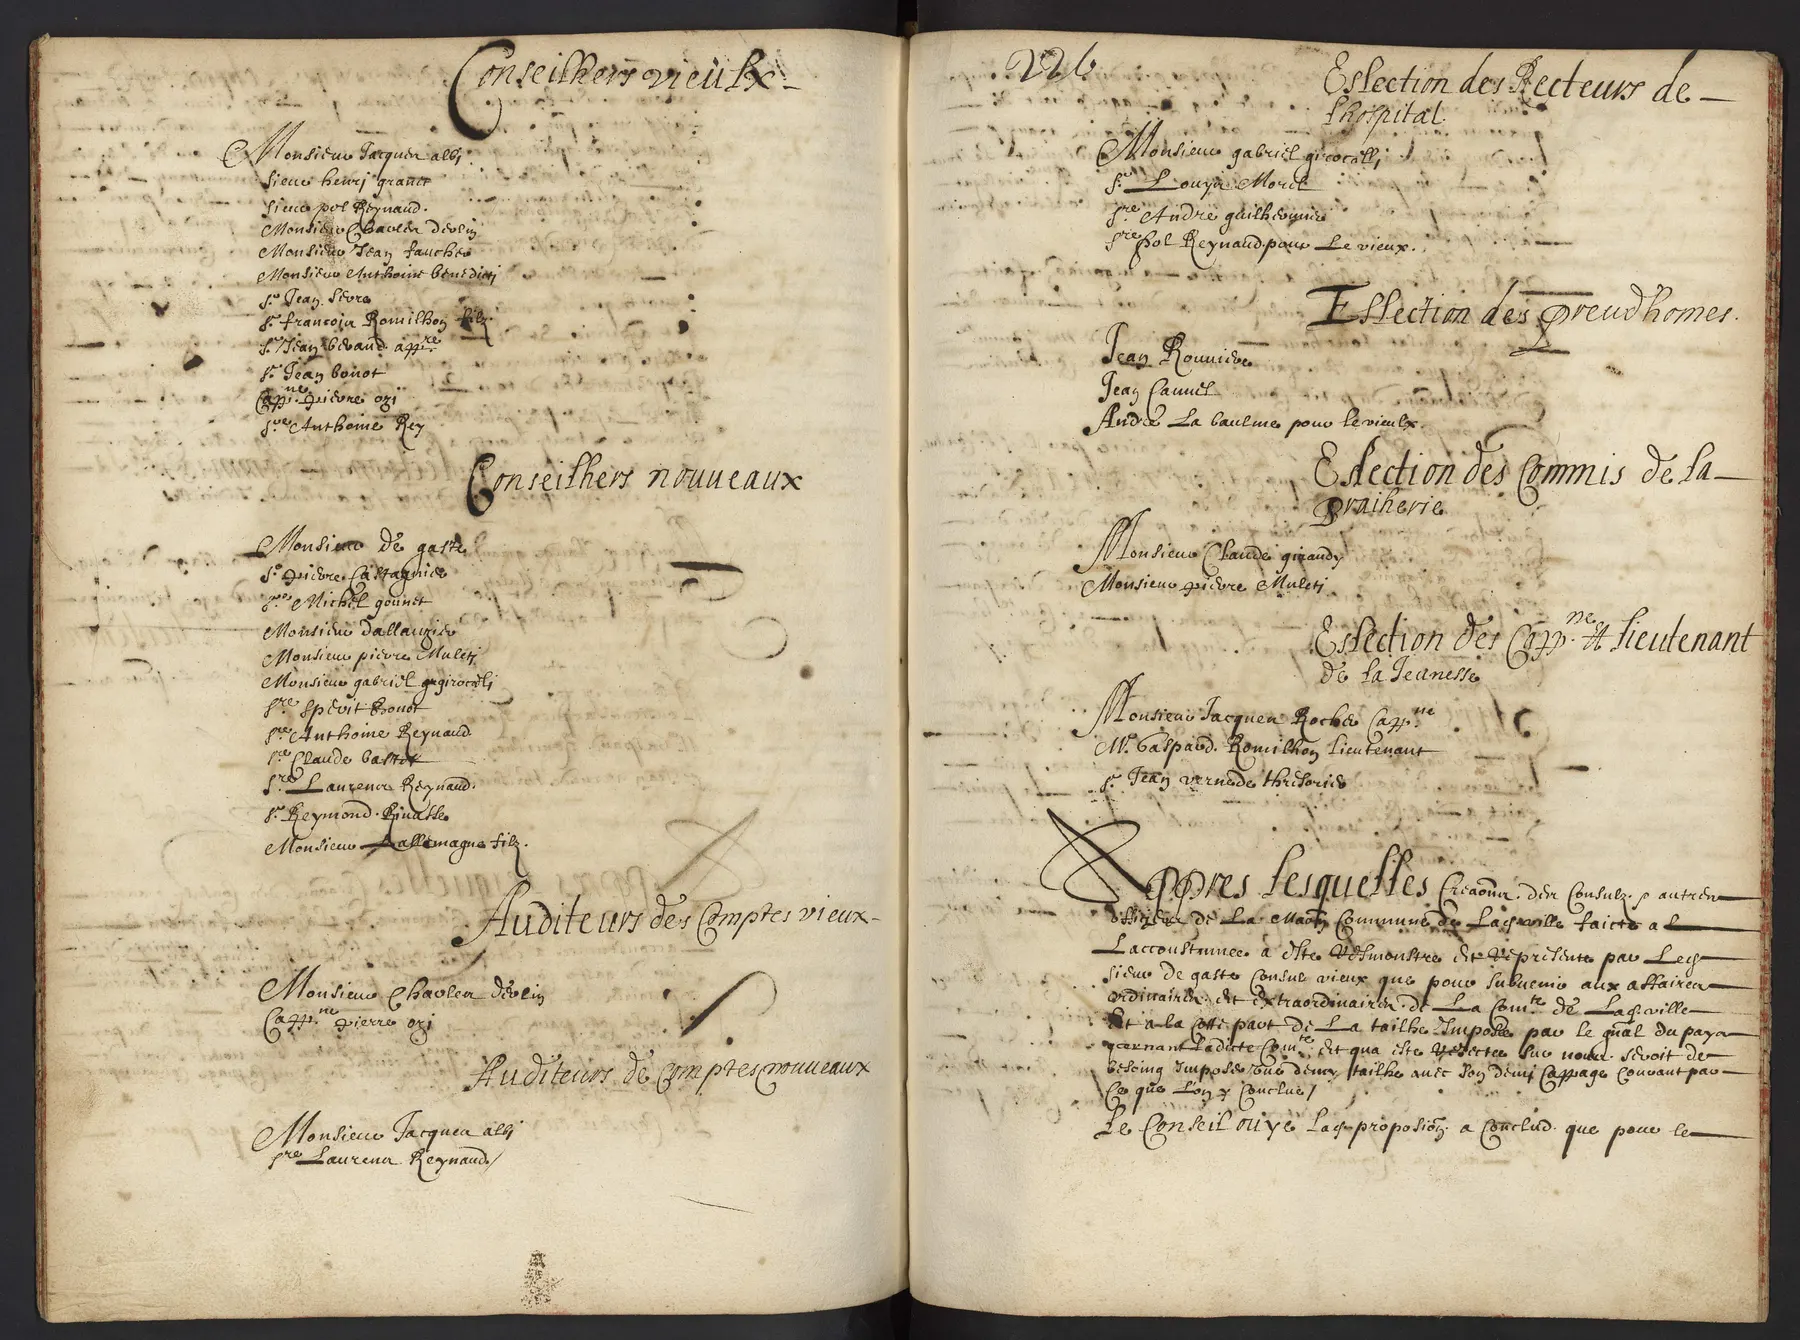 Conseilhers vieulx
Monsieur Jacques albj
sieur henrj granet
sieur pol Reynaud.
Monsieur Charles devlin
Monsieur Jean faucher
Monsieur Anthoine benedicti
sr Jean
sr francois Romilhon filz.
sr Jean beraud. appre
sr Jean bonot
Cappne pierre ozj
sre Anthoine Rey
Conseilhers nouveaux
Monsieur de gaste
sr pierre Castagnier
sre Michel gounet
Monsieur dallauzier
Monsieur pierre Muletj
Monsieur gabriel girocellj
sre sperit bonot
sre Anthoine Reynaud
sre Claude bastet
sre Laurens Reynaud.
sr Reymond. Rivasse
Monsieur Dallemagne filz.
Auditeurs des Comptes vieux
Monsieur Charles devlin
Cappne pierre ozj
Auditeurs de Comptes nouveaux
Monsieur Jacques albj
sre Laurens Reynaud/
226
Eslection des Recteurs de
lhospital.
Monsieur gabriel girocellj
sr Louys Morel
sre Andre guilhermier
sre pol Reynaud pour Le vieux.
Eslection des preudhomes.
Jean Rouviere
Jean Cauvel
André La baulme pour le vieulx
Eslection des Commis de la
praiherie
Monsieur Claude giraudy
Monsieur pierre Muletj
Eslection des Cappne Et lieutenant
de la Jeunesse
Monsieur Jacques Rocher Cappne
Mr Gaspard. Romilhon lieutenant
sr Jean vernede thresorier
Appres lesquelles Creaons. des Consulz. & autres
officiers de La Maon Commune de Lad ville faicte a L
Laccoustumee a este Remonstre Et Represente par Led
sieur de gaste Consul vieux que pour subvenir aux affaires
ordinaires. Et Extraordinaires. de La Comte de Lad ville
Et a la Cotte part de La tailhe Imposée par le gnal du pays
Ladicte Comte Et qua este seroit de
besoing Imposer une demy tailhe avec son demj Cappage Courant par
Ce que L'on y Conclue/
Le Conseil ouye Lad proposion. a Conclud. que pour le